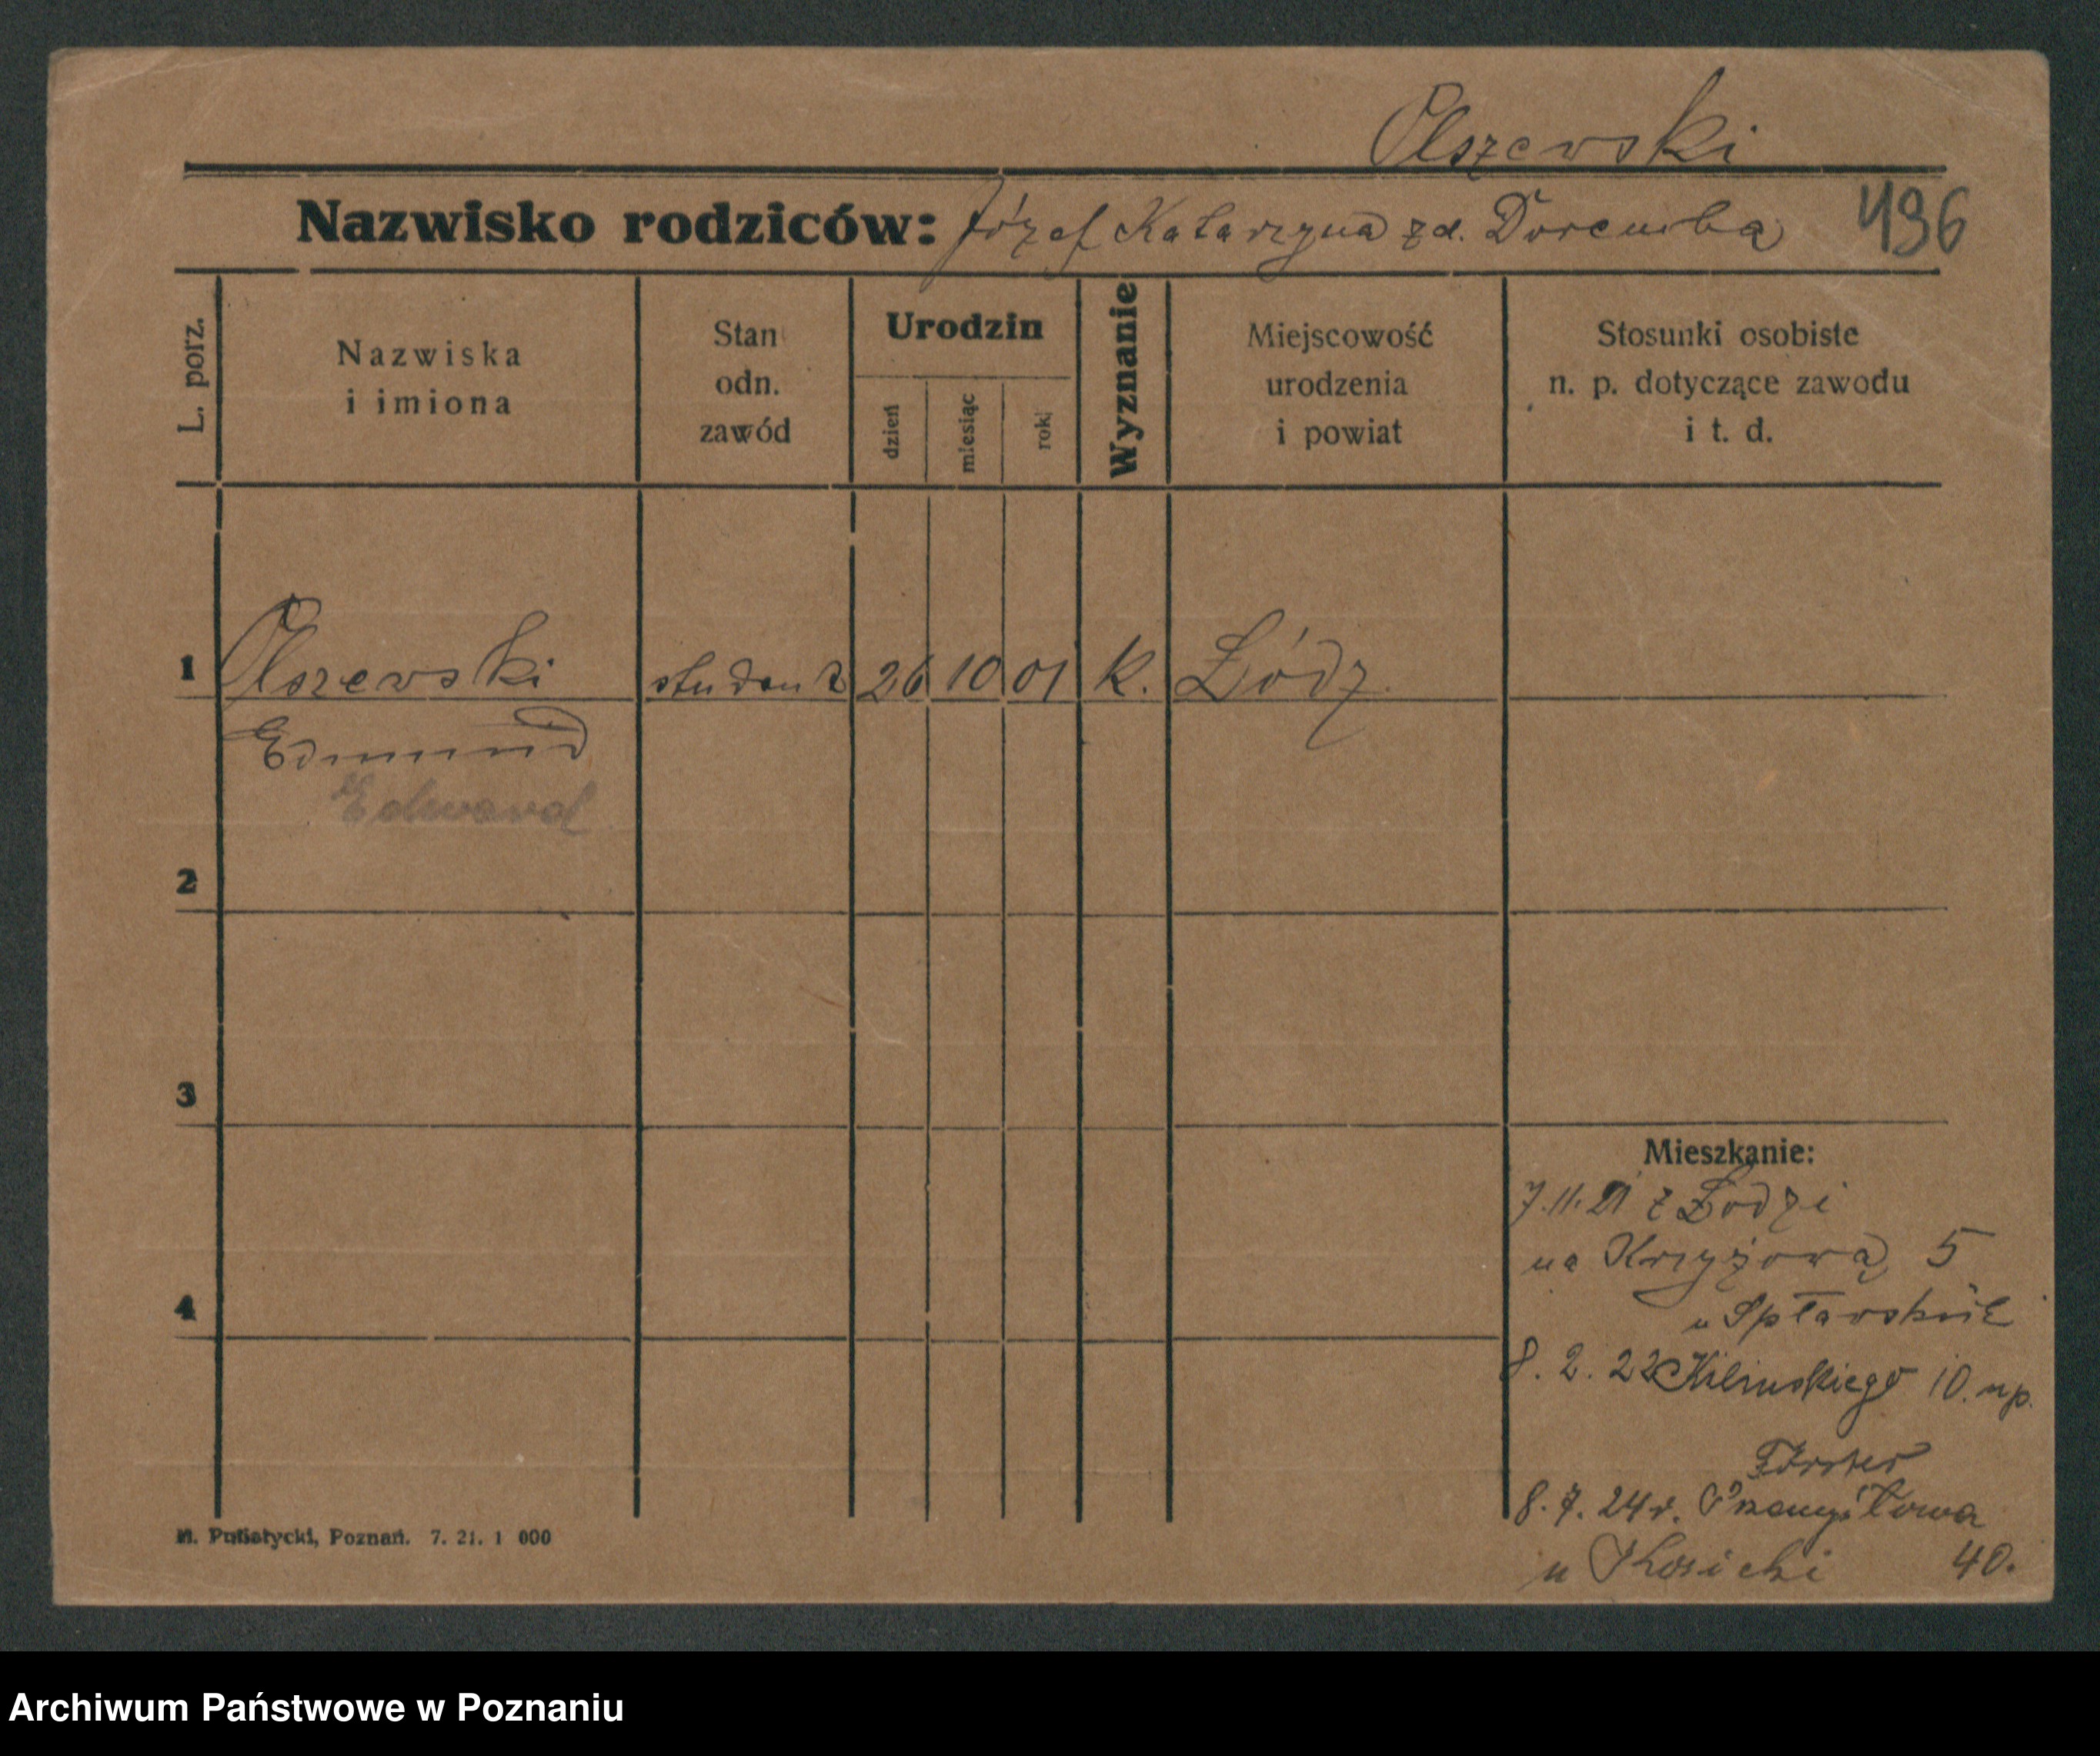 Olszewski
Nazwisko rodziców: Józef Katarzyna zd. Doremba 496
L. porz.
Nazwiska i imiona
Stan odn. zawód
Urodzin
dzień
miesiąc
rok
Wyznanie
Miejscowość urodzenia i powiat
Stosunki osobiste n. p. dotyczące zawodu i t. d.
1 Olszewski student 26 10 01 k. Łódz
Edmund
Edward
2
3
Mieszkanie:
7.11.21 z Łodzi
na Krzyżową 5
4
u
8. 2. 22 Kilinskiego 10. np.
Förster
8. 7. 24 r. Przemysłowa
u 40.
Poznań. 7. 21. 1 000
Archiwum Państwowe w Poznaniu